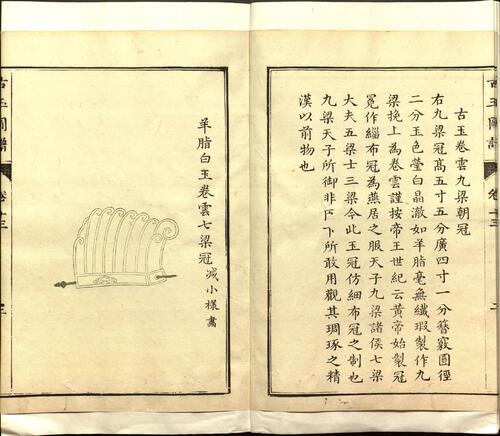 古玉圖譜
卷十三
古玉卷雲九梁朝冠
右九梁冠高五寸五分廣四寸一分簪竅圓徑
二分玉色瑩白晶澈如羊脂毫無纖瑕製作九
梁挽上為卷雲謹按帝王世紀云黃帝始製冠
冕作緇布冠為燕居之服天子九梁諸侯七梁
大夫五梁士三梁今此玉冠仿細布冠之制也
九梁天子所御非臣下所敢用觀其琱琢之精
漢以前物也
羊脂白玉卷雲七梁冠減小樣畫
古玉圖譜
卷十三